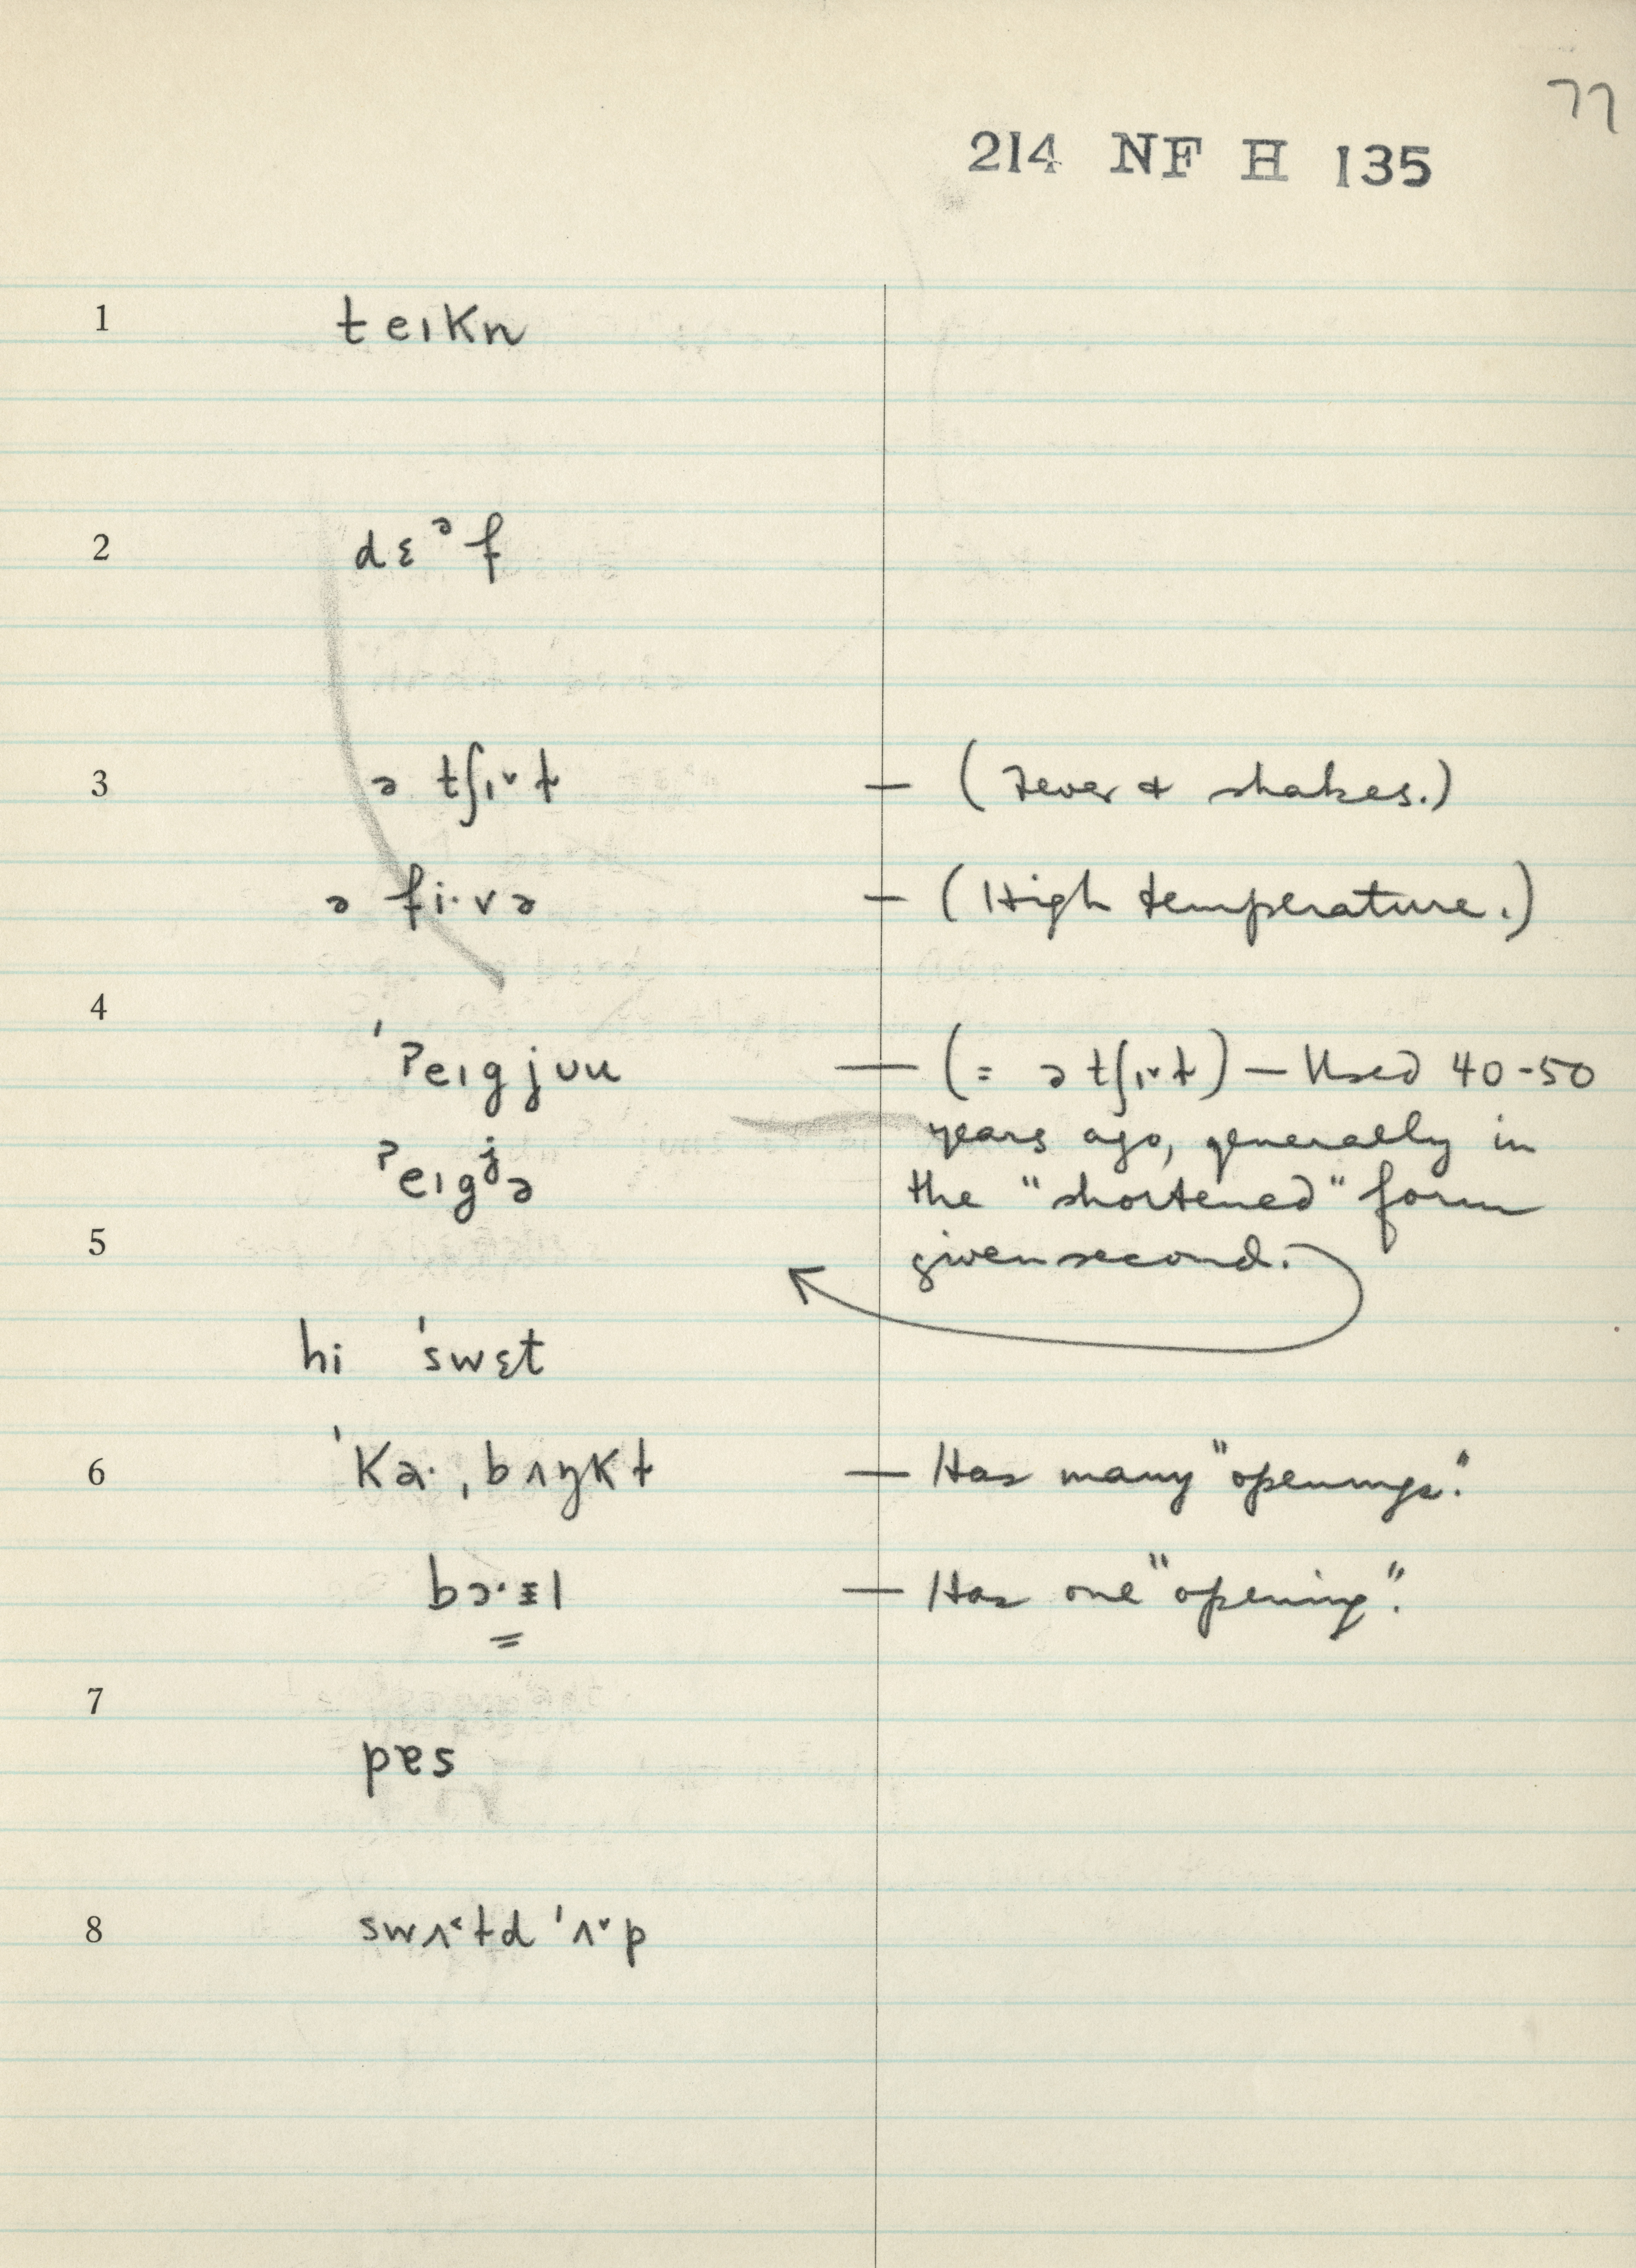 77
214 NF H 135
1 teɪkn
2 dɛᵊf
3 ə tʃɪ˅t — (Fever & shakes.)
ə fi·və — (High temperature.)
4
ˈʔeɪgjuu — (= ə tʃɪ˅t) — Used 40-50
years ago, generally in
ʔeɪgʲə the "shortened" form
5 given second.
hi ˈswɛt
6 ˈkɑ·ˌbʌŋkt — Has many "openings."
bɔ·ɪl — Has one "opening".
7
pɐs
8 swʌ˂td ˈʌ˅p